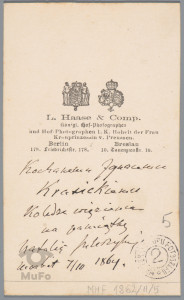 L. Haase & Comp.
Königl. Hof-Photographen
und Hof-Photographen I. K. Hoheit der Frau
Kronprinzessin v. Preussen.
Berlin Breslau
178. Friedrichsstr. 178. 16. Tauenzienstr. 16.
Kochanemu Ignacemu
Krasickiemu
Koledze więzienia
na pamiątkę
7/10 1864.
5
MuFo
MHF 1862/II/5